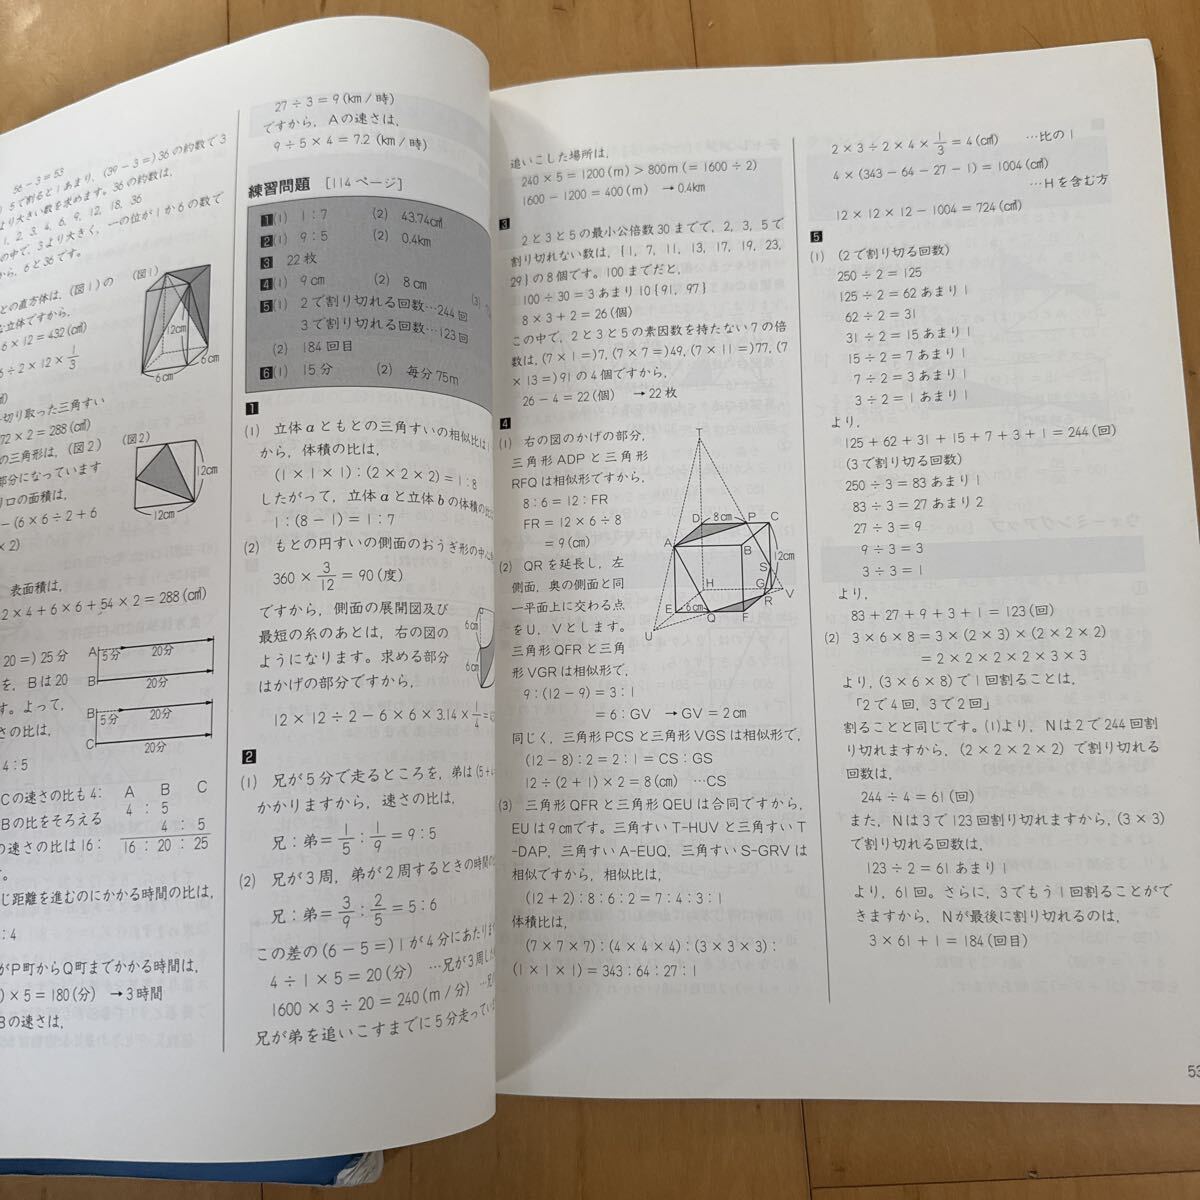 56−3=53
5で割ると1あまり，(39−3=)36の約数で3
より大きい数を求めます。36の約数は，
1，2，3，4，6，9，12，18，36
の中で，3より大きく，一の位が1か6の数で
から，6と36です。
(図1)
との直方体は，(図1)の
な立体ですから，
6×12=432(c㎥)
6÷2×12×1/3
12cm
6cm
6cm
切り取った三角すい
72×2=288(c㎥)
の三角形は，(図2)
部分になっています
(図2)
12cm
12cm
の面積は，
−(6×6÷2+6
×2)
表面積は，
2×4+6×6+54×2=288(c㎡)
20=)25分
A 5分 20分
B 20分
を，Bは20
す。よって，
さの比は，
B 5分 20分
C 20分
4：5
Cの速さの比も4：
Bの比をそろえる
の速さの比は16：
A B C
4：5
4：5
16：20：25
す。
じ距離を進むのにかかる時間の比は，
：4
がP町からQ町までかかる時間は，
)×5=180(分) →3時間
Bの速さは，
27÷3=9(km/時)
ですから，Aの速さは，
9÷5×4=7.2(km/時)
練習問題 [114ページ]
1 (1) 1：7 (2) 43.74c㎡
2 (1) 9：5 (2) 0.4km
3 22枚
4 (1) 9cm (2) 8cm
5 (1) 2で割り切れる回数…244回
3で割り切れる回数…123回
(2) 184回目
6 (1) 15分 (2) 毎分75m
1
(1) 立体aともとの三角すいの相似比は
から，体積の比は，
(1×1×1)：(2×2×2)=1：8
したがって，立体aと立体bの体積の比
1：(8−1)=1：7
(2) もとの円すいの側面のおうぎ形の中心
360×3/12=90(度)
ですから，側面の展開図及び
最短の糸のあとは，右の図の
ようになります。求める部分
はかげの部分ですから，
6cm
6cm
12×12÷2−6×6×3.14×1/4
2
(1) 兄が5分で走るところを，弟は(5+
かかりますから，速さの比は，
兄：弟=1/5：1/9=9：5
(2) 兄が3周，弟が2周するときの時間の
兄：弟=3/9：2/5=5：6
この差の(6−5=)1が4分にあたります
4÷1×5=20(分) …兄が3周し
1600×3÷20=240(m/分)
兄が弟を追いこすまでに5分走ってい
追いこした場所は，
240×5=1200(m)>800m(=1600÷2)
1600−1200=400(m) →0.4km
3
2と3と5の最小公倍数30までで，2，3，5で
割り切れない数は，{1，7，11，13，17，19，23，
29}の8個です。100までだと，
100÷30=3あまり10{91，97}
8×3+2=26(個)
この中で，2と3と5の素因数を持たない7の倍
数は，(7×1=)7，(7×7=)49，(7×11=)77，(7
×13=)91の4個ですから，
26−4=22(個) →22枚
4
(1) 右の図のかげの部分，
三角形ADPと三角形
RFQは相似形ですから，
8：6=12：FR
FR=12×6÷8
=9(cm)
(2) QRを延長し，左
側面，奥の側面と同
一平面上に交わる点
をU，Vとします。
三角形QFRと三角
形VGRは相似形で，
T
D 8cm P C
A B 12cm
S
H G V
E 6cm R
Q F
U
9：(12−9)=3：1
=6：GV →GV=2cm
同じく，三角形PCSと三角形VGSは相似形で，
(12−8)：2=2：1=CS：GS
12÷(2+1)×2=8(cm) …CS
(3) 三角形QFRと三角形QEUは合同ですから，
EUは9cmです。三角すいT-HUVと三角すいT
-DAP，三角すいA-EUQ，三角すいS-GRVは
相似ですから，相似比は，
(12+2)：8：6：2=7：4：3：1
体積比は，
(7×7×7)：(4×4×4)：(3×3×3)：
(1×1×1)=343：64：27：1
2×3÷2×4×1/3=4(c㎥) …比の1
4×(343−64−27−1)=1004(c㎥)
…Hを含む方
12×12×12−1004=724(c㎥)
5
(1) (2で割り切る回数)
250÷2=125
125÷2=62あまり1
62÷2=31
31÷2=15あまり1
15÷2=7あまり1
7÷2=3あまり1
3÷2=1あまり1
より，
125+62+31+15+7+3+1=244(回)
(3で割り切る回数)
250÷3=83あまり1
83÷3=27あまり2
27÷3=9
9÷3=3
3÷3=1
より，
83+27+9+3+1=123(回)
(2) 3×6×8=3×(2×3)×(2×2×2)
=2×2×2×2×3×3
より，(3×6×8)で1回割ることは，
「2で4回，3で2回」
割ることと同じです。(1)より，Nは2で244回割
り切れますから，(2×2×2×2)で割り切れる
回数は，
244÷4=61(回)
また，Nは3で123回割り切れますから，(3×3)
で割り切れる回数は，
123÷2=61あまり1
より，61回。さらに，3でもう1回割ることがで
きますから，Nが最後に割り切れるのは，
3×61+1=184(回目)
53